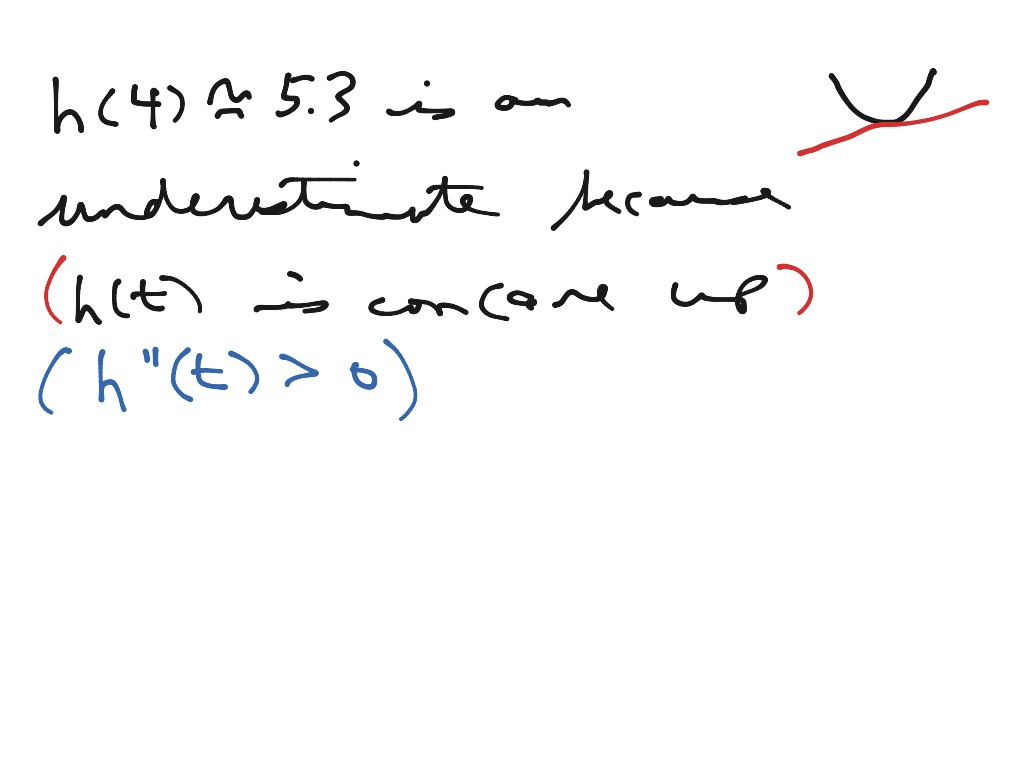 h(4) ≅ 5.3 is an
underestimate because
(h(t) is concave up)
(h"(t) > 0)